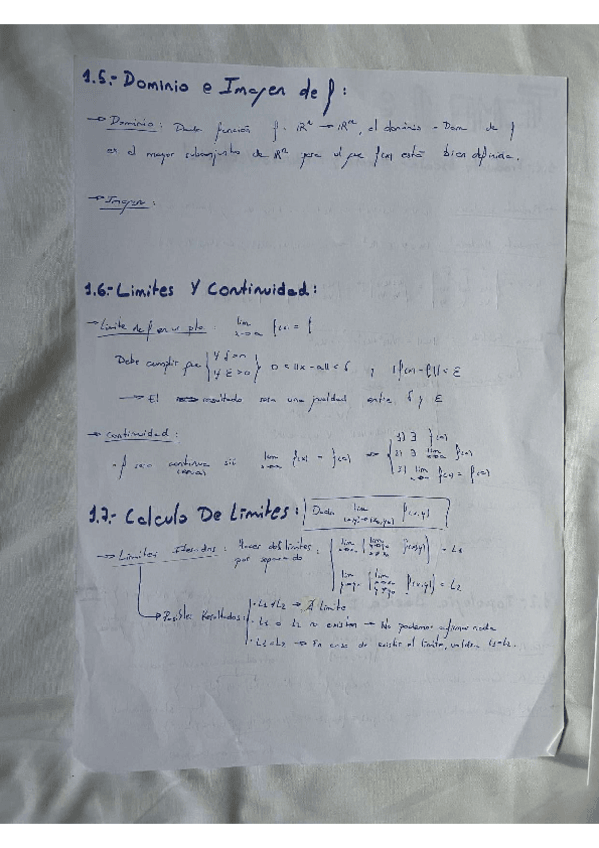 1.5.- Dominio e Imagen de f:
→ Dominio: Dada función f: ℝⁿ → ℝⁿ, el dominio = Dom de f
es el mayor subconjunto de ℝⁿ para el que f(x) está bien definida.
→ Imagen:
1.6.- Limites Y Continuidad:
→ Limite de f en un pto: lim x→a f(x) = l
Debe cumplir que { ∀ δ>0 ∀ ε>0 } 0 < ||x-a|| < δ y |f(x)-l| < ε
→ El resultado sera una igualdad entre δ y ε
→ Continuidad:
f sera continua sii lim x→a f(x) = f(a) ⇒ { 1) ∃ f(a)
2) ∃ lim x→a f(x)
3) lim x→a f(x) = f(a)
1.7.- Calculo De Limites: Dada lim (x,y)→(x₀,y₀) f(x,y)
→ Limites Iterados: Haces dos limites por separado { lim x→x₀ ( lim y→y₀ f(x,y) ) = L₁
lim y→y₀ ( lim x→x₀ f(x,y) ) = L₂
→ Posibles Resultados: { · L₁≠L₂ → ∄ Limite
· L₁ o L₂ no existen → No podemos afirmar nada
· L₁=L₂ → En caso de existir el limite, valdra L₁=L₂.